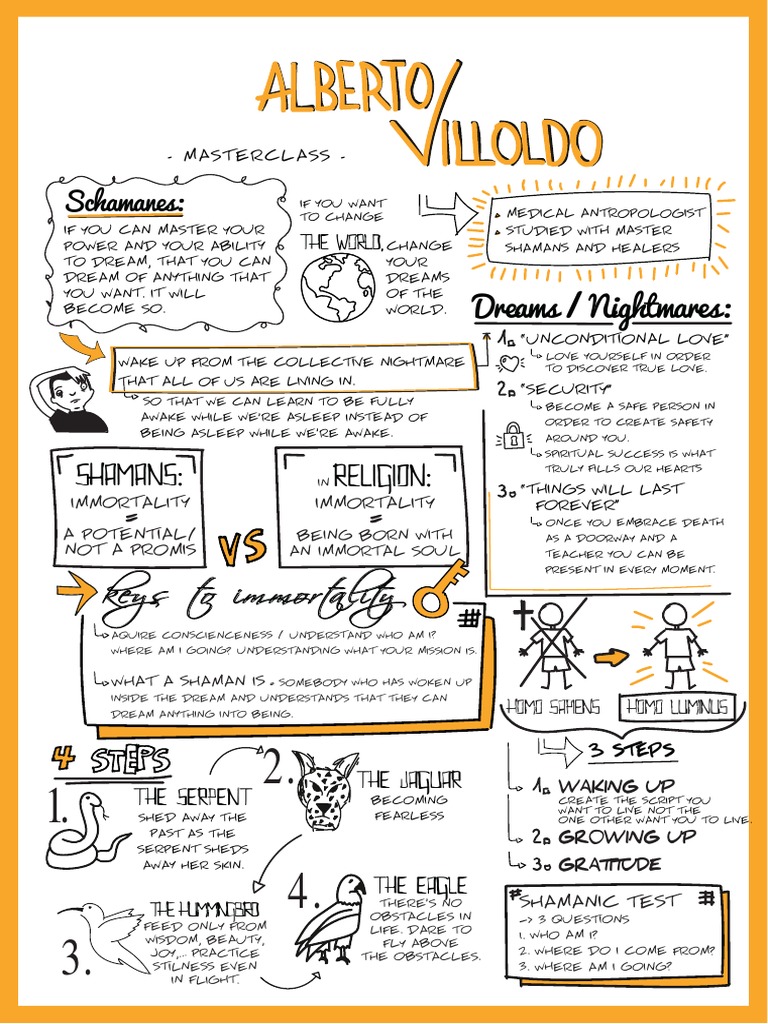 ALBERTO
VILLOLDO
- MASTERCLASS -
Schamanes:
IF YOU CAN MASTER YOUR
POWER AND YOUR ABILITY
TO DREAM, THAT YOU CAN
DREAM OF ANYTHING THAT
YOU WANT. IT WILL
BECOME SO.
IF YOU WANT
TO CHANGE
THE WORLD, CHANGE
YOUR
DREAMS
OF THE
WORLD.
• MEDICAL ANTROPOLOGIST
• STUDIED WITH MASTER
SHAMANS AND HEALERS
WAKE UP FROM THE COLLECTIVE NIGHTMARE
THAT ALL OF US ARE LIVING IN.
SO THAT WE CAN LEARN TO BE FULLY
AWAKE WHILE WE'RE ASLEEP INSTEAD OF
BEING ASLEEP WHILE WE'RE AWAKE.
Dreams / Nightmares:
1. "UNCONDITIONAL LOVE"
LOVE YOURSELF IN ORDER
TO DISCOVER TRUE LOVE.
2. "SECURITY"
BECOME A SAFE PERSON IN
ORDER TO CREATE SAFETY
AROUND YOU.
SPIRITUAL SUCCESS IS WHAT
TRULY FILLS OUR HEARTS
3. "THINGS WILL LAST
FOREVER"
ONCE YOU EMBRACE DEATH
AS A DOORWAY AND A
TEACHER YOU CAN BE
PRESENT IN EVERY MOMENT.
SHAMANS:
IMMORTALITY
=
A POTENTIAL/
NOT A PROMIS
VS
IN RELIGION:
IMMORTALITY
=
BEING BORN WITH
AN IMMORTAL SOUL
keys to immortality
#
AQUIRE CONSCIENCENESS / UNDERSTAND WHO AM I?
WHERE AM I GOING? UNDERSTANDING WHAT YOUR MISSION IS.
WHAT A SHAMAN IS. SOMEBODY WHO HAS WOKEN UP
INSIDE THE DREAM AND UNDERSTANDS THAT THEY CAN
DREAM ANYTHING INTO BEING.
HOMO SAPIENS
HOMO LUMINUS
3 STEPS
1. WAKING UP
CREATE THE SCRIPT YOU
WANT TO LIVE NOT THE
ONE OTHER WANT YOU TO LIVE.
2. GROWING UP
3. GRATITUDE
4 STEPS
1.
THE SERPENT
SHED AWAY THE
PAST AS THE
SERPENT SHEDS
AWAY HER SKIN.
2.
THE JAGUAR
BECOMING
FEARLESS
3.
THE HUMMINGBIRD
FEED ONLY FROM
WISDOM, BEAUTY,
JOY,... PRACTICE
STILNESS EVEN
IN FLIGHT.
4.
THE EAGLE
THERE'S NO
OBSTACLES IN
LIFE. DARE TO
FLY ABOVE
THE OBSTACLES.
# SHAMANIC TEST #
-> 3 QUESTIONS
1. WHO AM I?
2. WHERE DO I COME FROM?
3. WHERE AM I GOING?